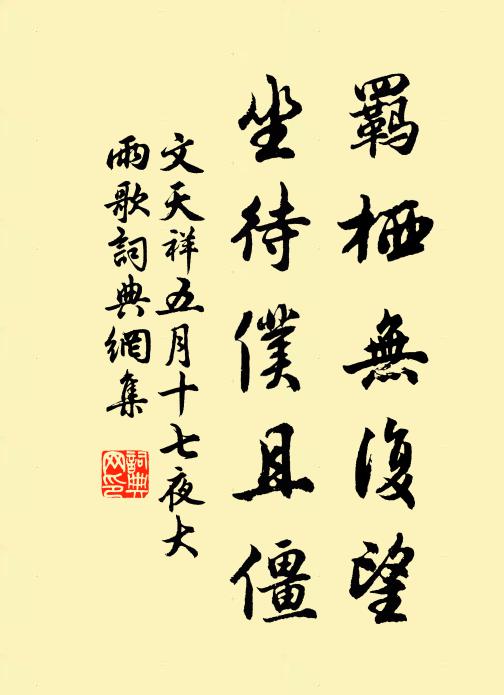 羈栖無復望
坐待僕且僵
文天祥五月十七夜大
雨歌詞典網集
詞典
网印